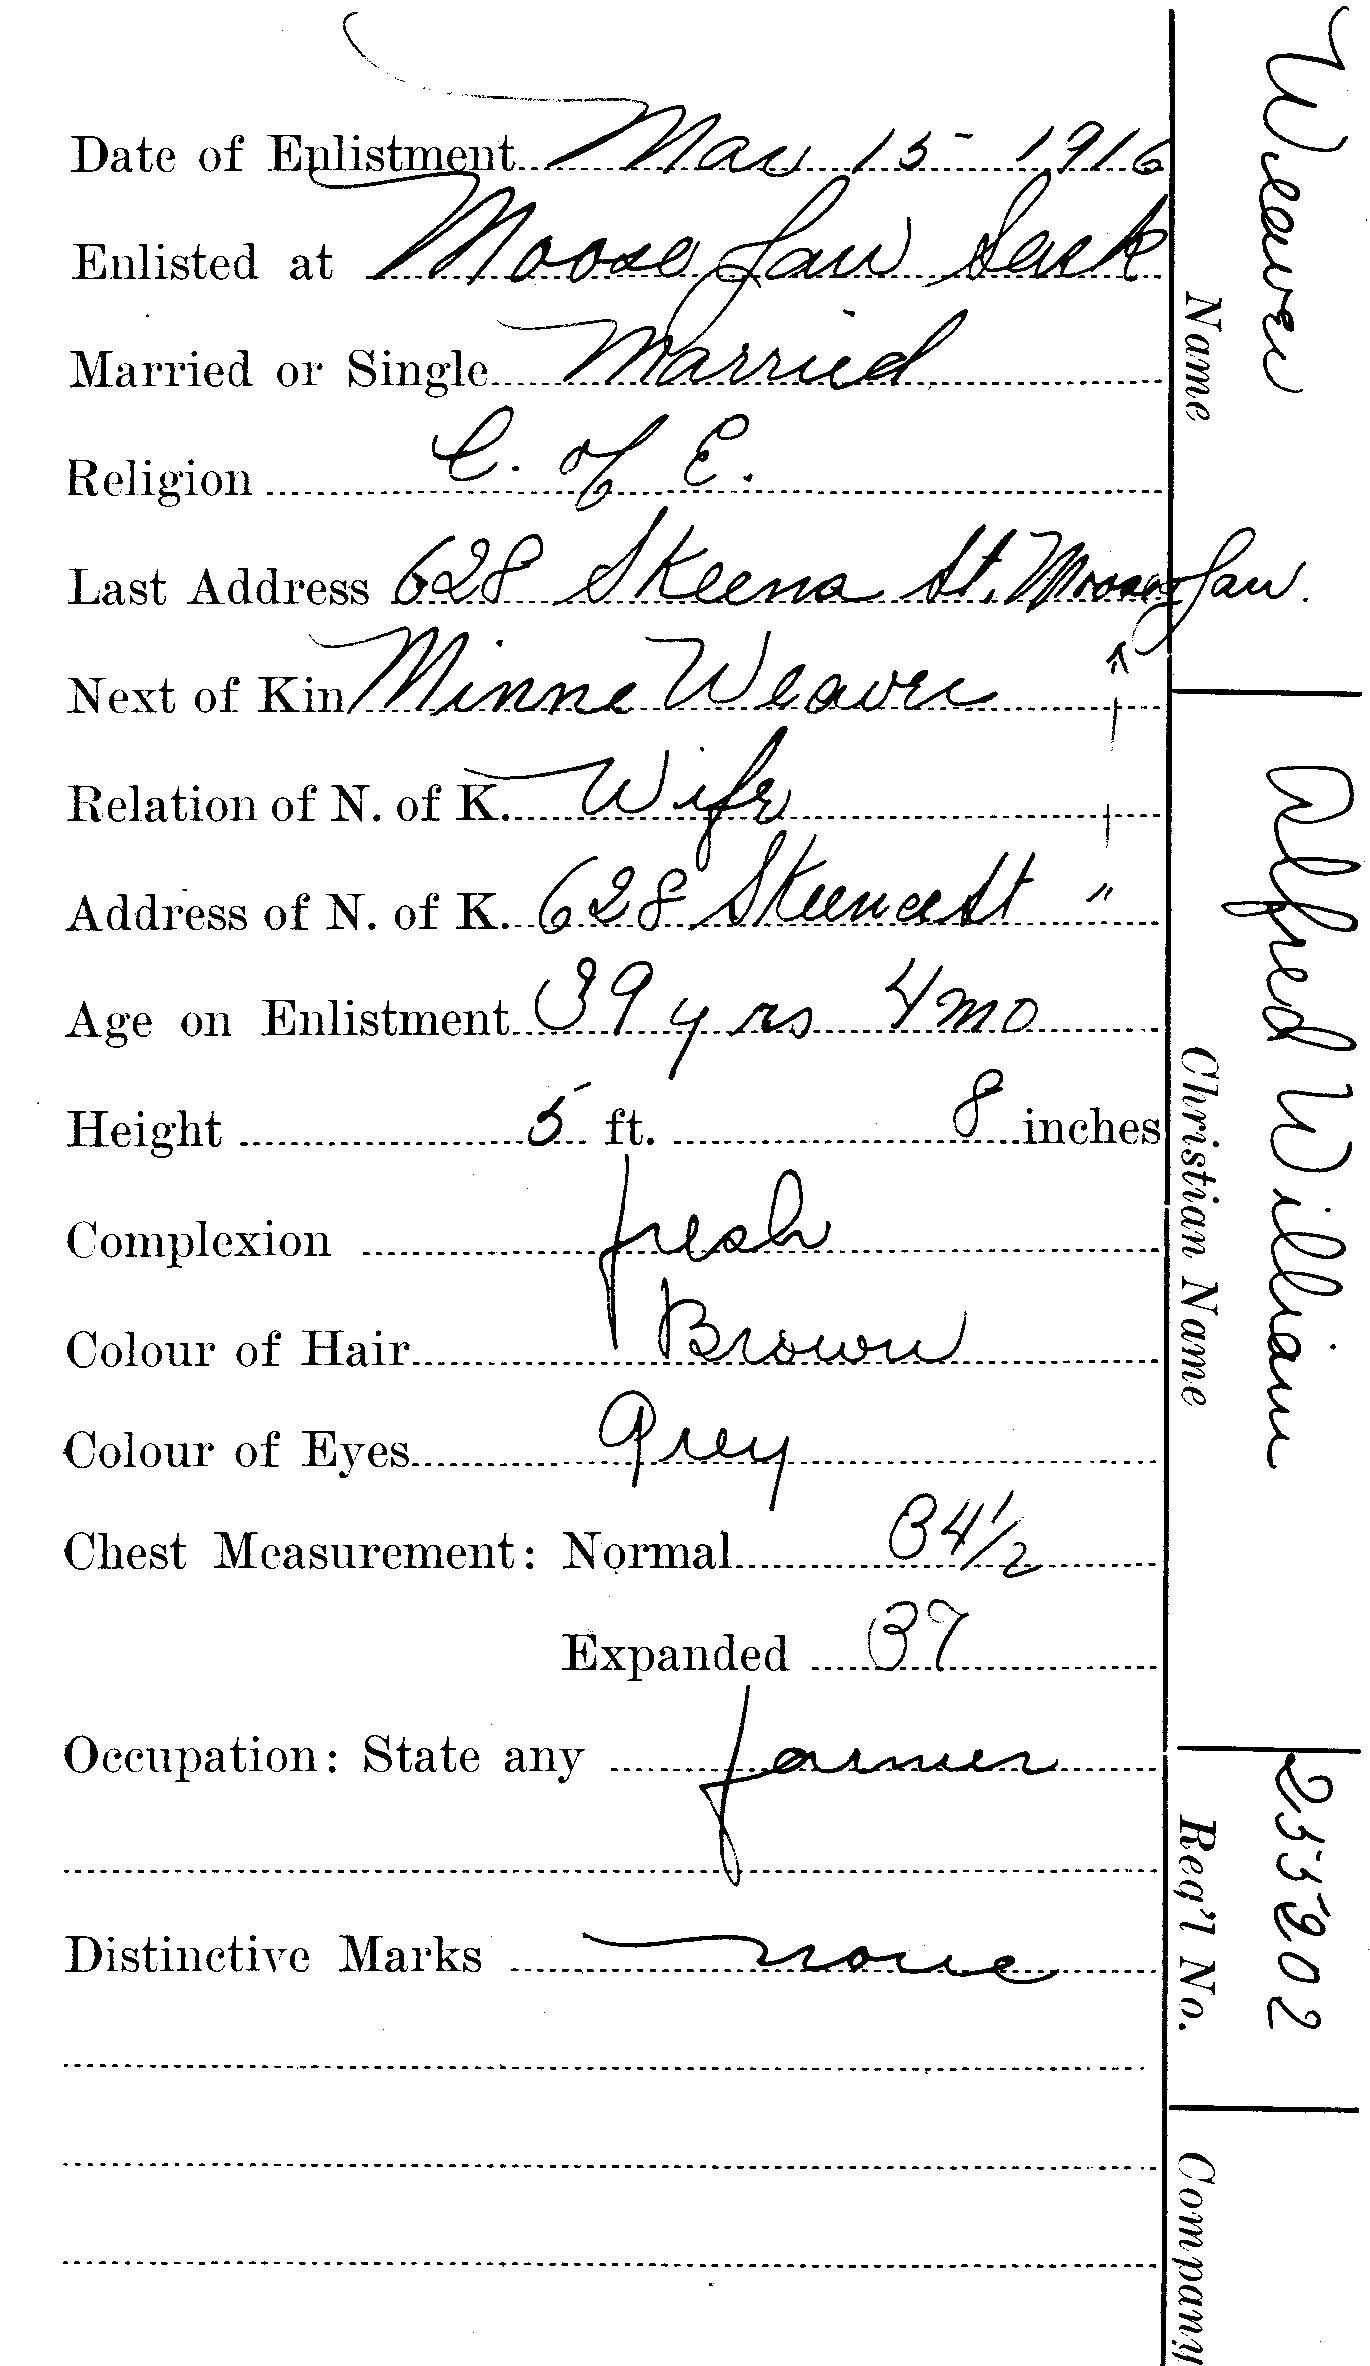 Date of Enlistment Mar 15 1916
Enlisted at Moose Jaw Sask
Married or Single Married
Religion C. of E.
Last Address 628 Skeena St. Moose Jaw.
Next of Kin Minne Weaver
Relation of N. of K. Wife
Address of N. of K. 628 Skeena St "
Age on Enlistment 39 yrs 4 mo
Height 5 ft. 8 inches
Complexion fresh
Colour of Hair Brown
Colour of Eyes Grey
Chest Measurement: Normal 34 1/2
Expanded 37
Occupation: State any farmer
Distinctive Marks none
Weaver
Name
Alfred William
Christian Name
255202
Reg'l No.
Company